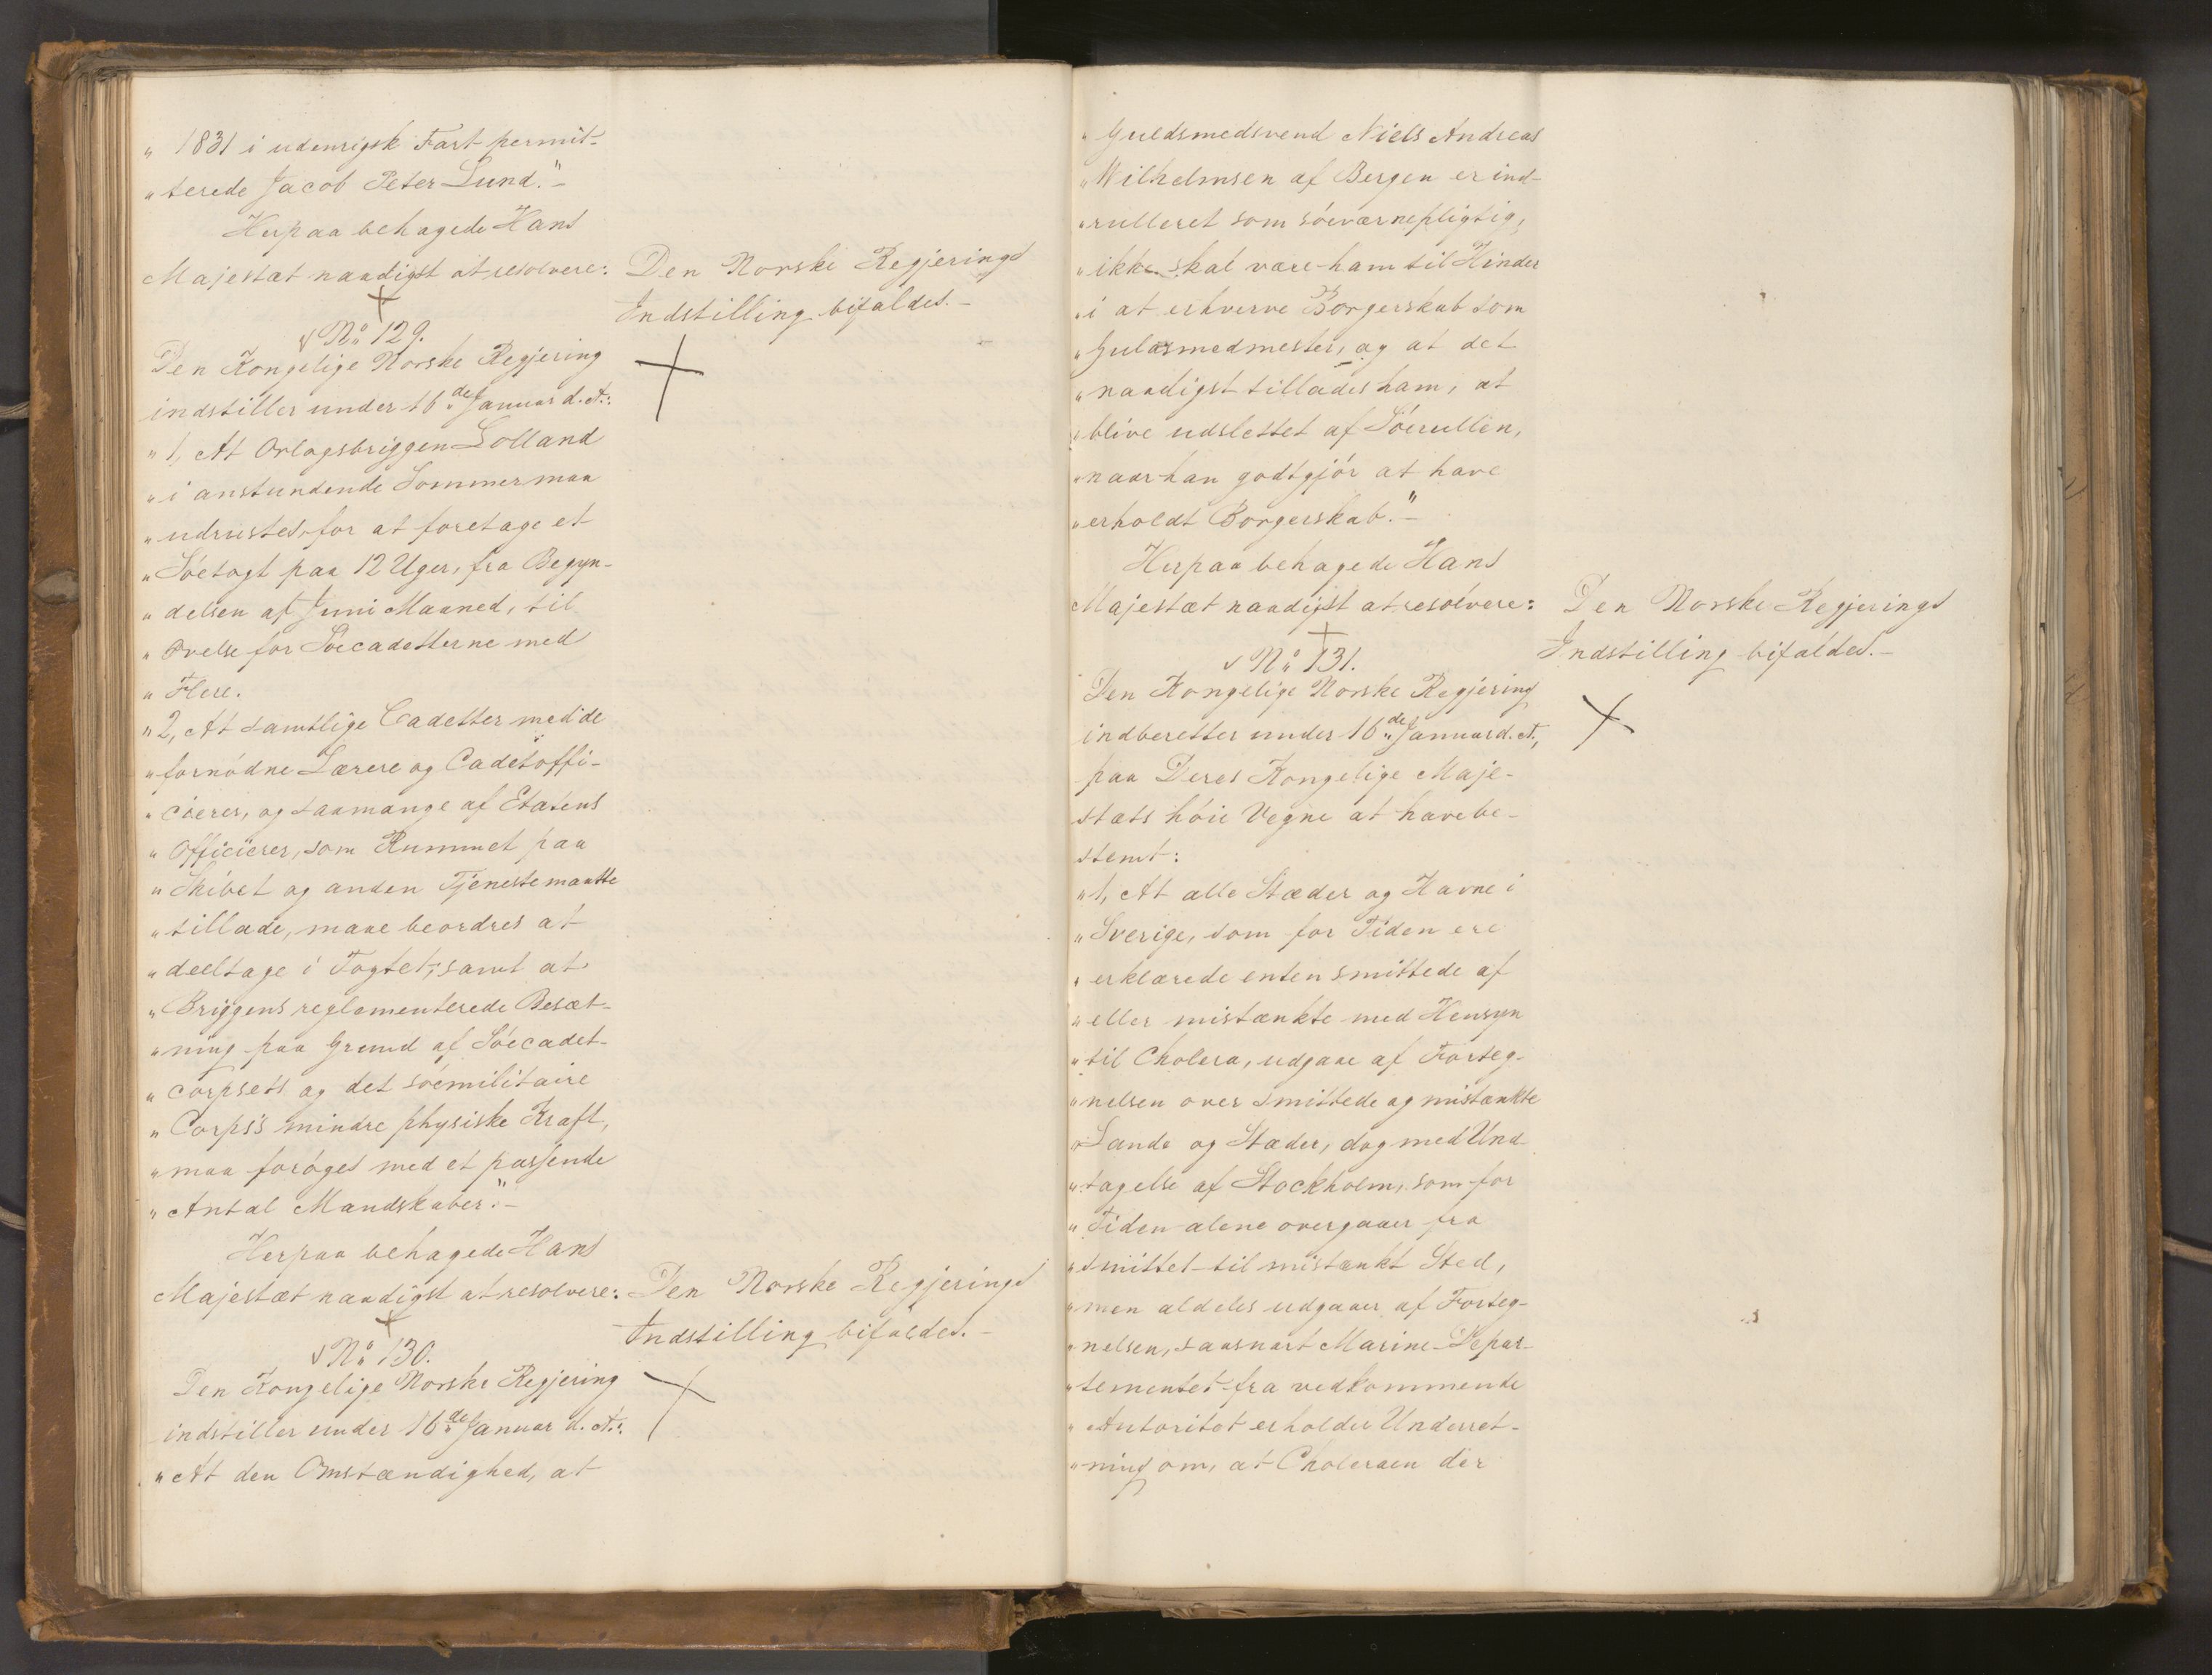 „ 1831 i udenrigsk Fart permit-
„ terede Jacob Peter Lund."-
Herpaa behagede Hans
Majestæt naadigst at resolvere:
Den Norske Regjerings
Indstilling bifaldes.-
No 129.
Den Kongelige Norske Regjering
indstiller under 16de Januar d. A.:
„ 1, At Orlogsbriggen Lolland
„ i anstundende Sommer maa
„ udrustes, for at foretage et
„ Søetogt paa 12 Uger, fra Begyn-
„ delsen af Juni Maaned, til
„ Øvelse for Søecadetterne med
„ Flere.
„ 2, At samtlige Cadetter med de
„ fornødne Lærere og Cadetoffi-
„ cierer, og saamange af Etatens
„ Officierer, som Rummet paa
„ Skibet og anden Tjeneste maatte
„ tillade, maae beordres at
„ deeltage i Togtet, samt at
„ Briggens reglementerede Besæt-
„ ning paa Grund af Søecadet-
„ corpsets og det søemilitaire
„ Corps's mindre physiske Kraft,
„ maa forøges med et passende
„ Antal Mandskaber."-
Herpaa behagede Hans
Majestæt naadigst at resolvere:
Den Norske Regjerings
Indstilling bifaldes.-
No 130.
Den Kongelige Norske Regjering
indstiller under 16de Januar d. A.:
„ At den Omstændighed, at
„ Guldsmedsvend Niels Andreas
„ Wilhelmsen af Bergen er ind-
„ rulleret som søeværnepligtig,
„ ikke skal være ham til Hinder
„ i at erhverve Borgerskab som
„ Guldsmedmester, og at det
„ naadigst tillades ham, at
„ blive udslettet af Søerullen,
„ naar han godtgjør at have
„ erholdt Borgerskab."-
Herpaa behagede Hans
Majestæt naadigst at resolvere:
Den Norske Regjerings
Indstilling bifaldes.-
No 131.
Den Kongelige Norske Regjering
indberetter under 16de Januar d. A.,
paa Deres Kongelige Maje-
stæts høie Vegne at have be-
stemt:
„ 1, At alle Stæder og Havne i
„ Sverige, som for Tiden ere
„ erklærede enten smittede af
„ eller mistænkte med Hensyn
„ til Cholera, udgaae af Forteg-
„ nelsen over smittede og mistænkte
„ Lande og Stæder, dog med Und
„ tagelse af Stockholm, som for
„ Tiden alene overgaaer fra
„ smittet til mistænkt Sted,
„ men aldeles udgaaer af Forteg-
„ nelsen, saasnart Marine-Depar-
„ tementet fra vedkommende
„ Autoritet erholder Underret-
„ ning om, at Choleraen der